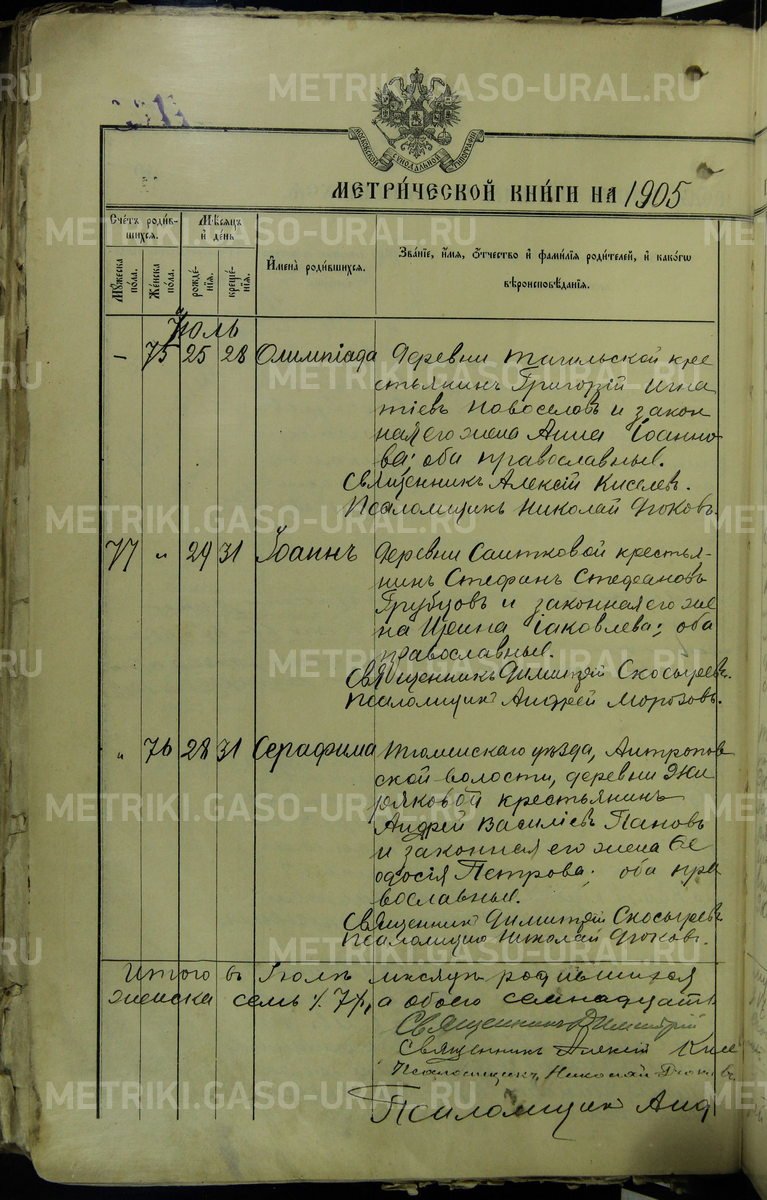 METRIKI.GASO-URAL.RU
МОСКОВСКОЙ СѴНОДАЛЬНОЙ ТИПОГРАФІИ
МЕТРИ́ЧЕСКОЙ КНИ́ГИ НА 1905
Сче́тъ роди́вшихся.
Мѣ́сяцъ и҆ де́нь
Муже́ска по́ла.
Же́нска по́ла.
рожде́нїя.
креще́нїя.
И҆мена̀ роди́вшихся.
Зва́нїе, и҆́мя, ѻ҆́тчество и҆ фами́лїя роди́телей, и҆ како́гѡ
вѣроисповѣ́данїя.
Іюль
— 75 25 28 Олимпіада Деревни Тагильской кре
стьянинъ Григорій Игна
тіевъ Новоселовъ и закон
ная его жена Анна Іоанно
ва; оба православные.
Священникъ Алексій Киселев.
Псаломщикъ Николай Дюковъ.
77 " 29 31 Іоаннъ Деревни Саитковой крестья-
нинъ Стефанъ Стефановъ
Трубцовъ и законная его же
на Ирина Іаковлева; оба
православные.
Священникъ Димитрій Скосыревъ.
Псаломщикъ Андрей Морозовъ.
" 76 28 31 Серафима уѣзда, Антропов
ской волости, деревни
ряковой крестьянинъ
Андрей Василіевъ Пановъ
и законная его жена Ѳе
одосія Петрова; оба пра
вославные.
Священникъ Димитрій Скосыревъ
Псаломщикъ Николай Дюковъ.
Итого въ Іюлѣ мѣсяцѣ родившихся
женска семь /7/, а обоего семнадцать
Священникъ Димитрій
Священникъ Алексій Кисе
Псаломщикъ Николай Дюковъ
Псаломщик Анд